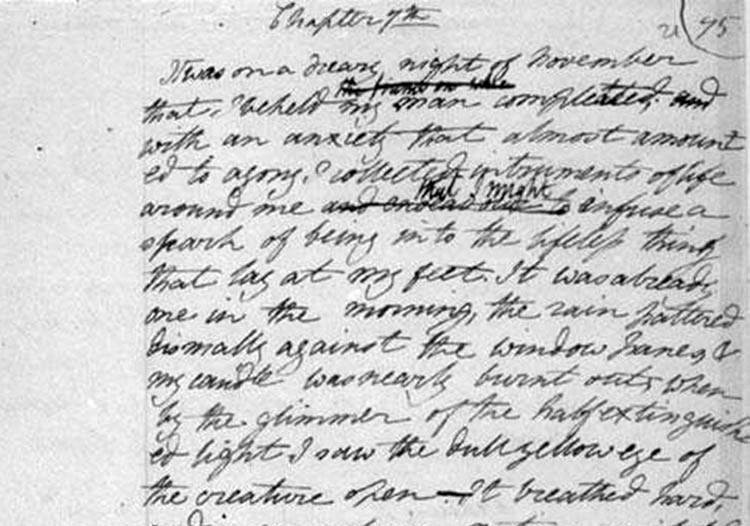 Chapter 7th
21 95
It was on a dreary night of November
the frame on whic
that I beheld my man compleated; and
with an anxiety that almost amount
ed to agony, I collected instruments of life
that I might
around me and endeavour to infuse a
spark of being into the lifeless thing
that lay at my feet. It was already
one in the morning, the rain pattered
dismally against the window panes, &
my candle was nearly burnt out, when
by the glimmer of the half extinguish
ed light I saw the dull yellow eye of
the creature open — It breathed hard,